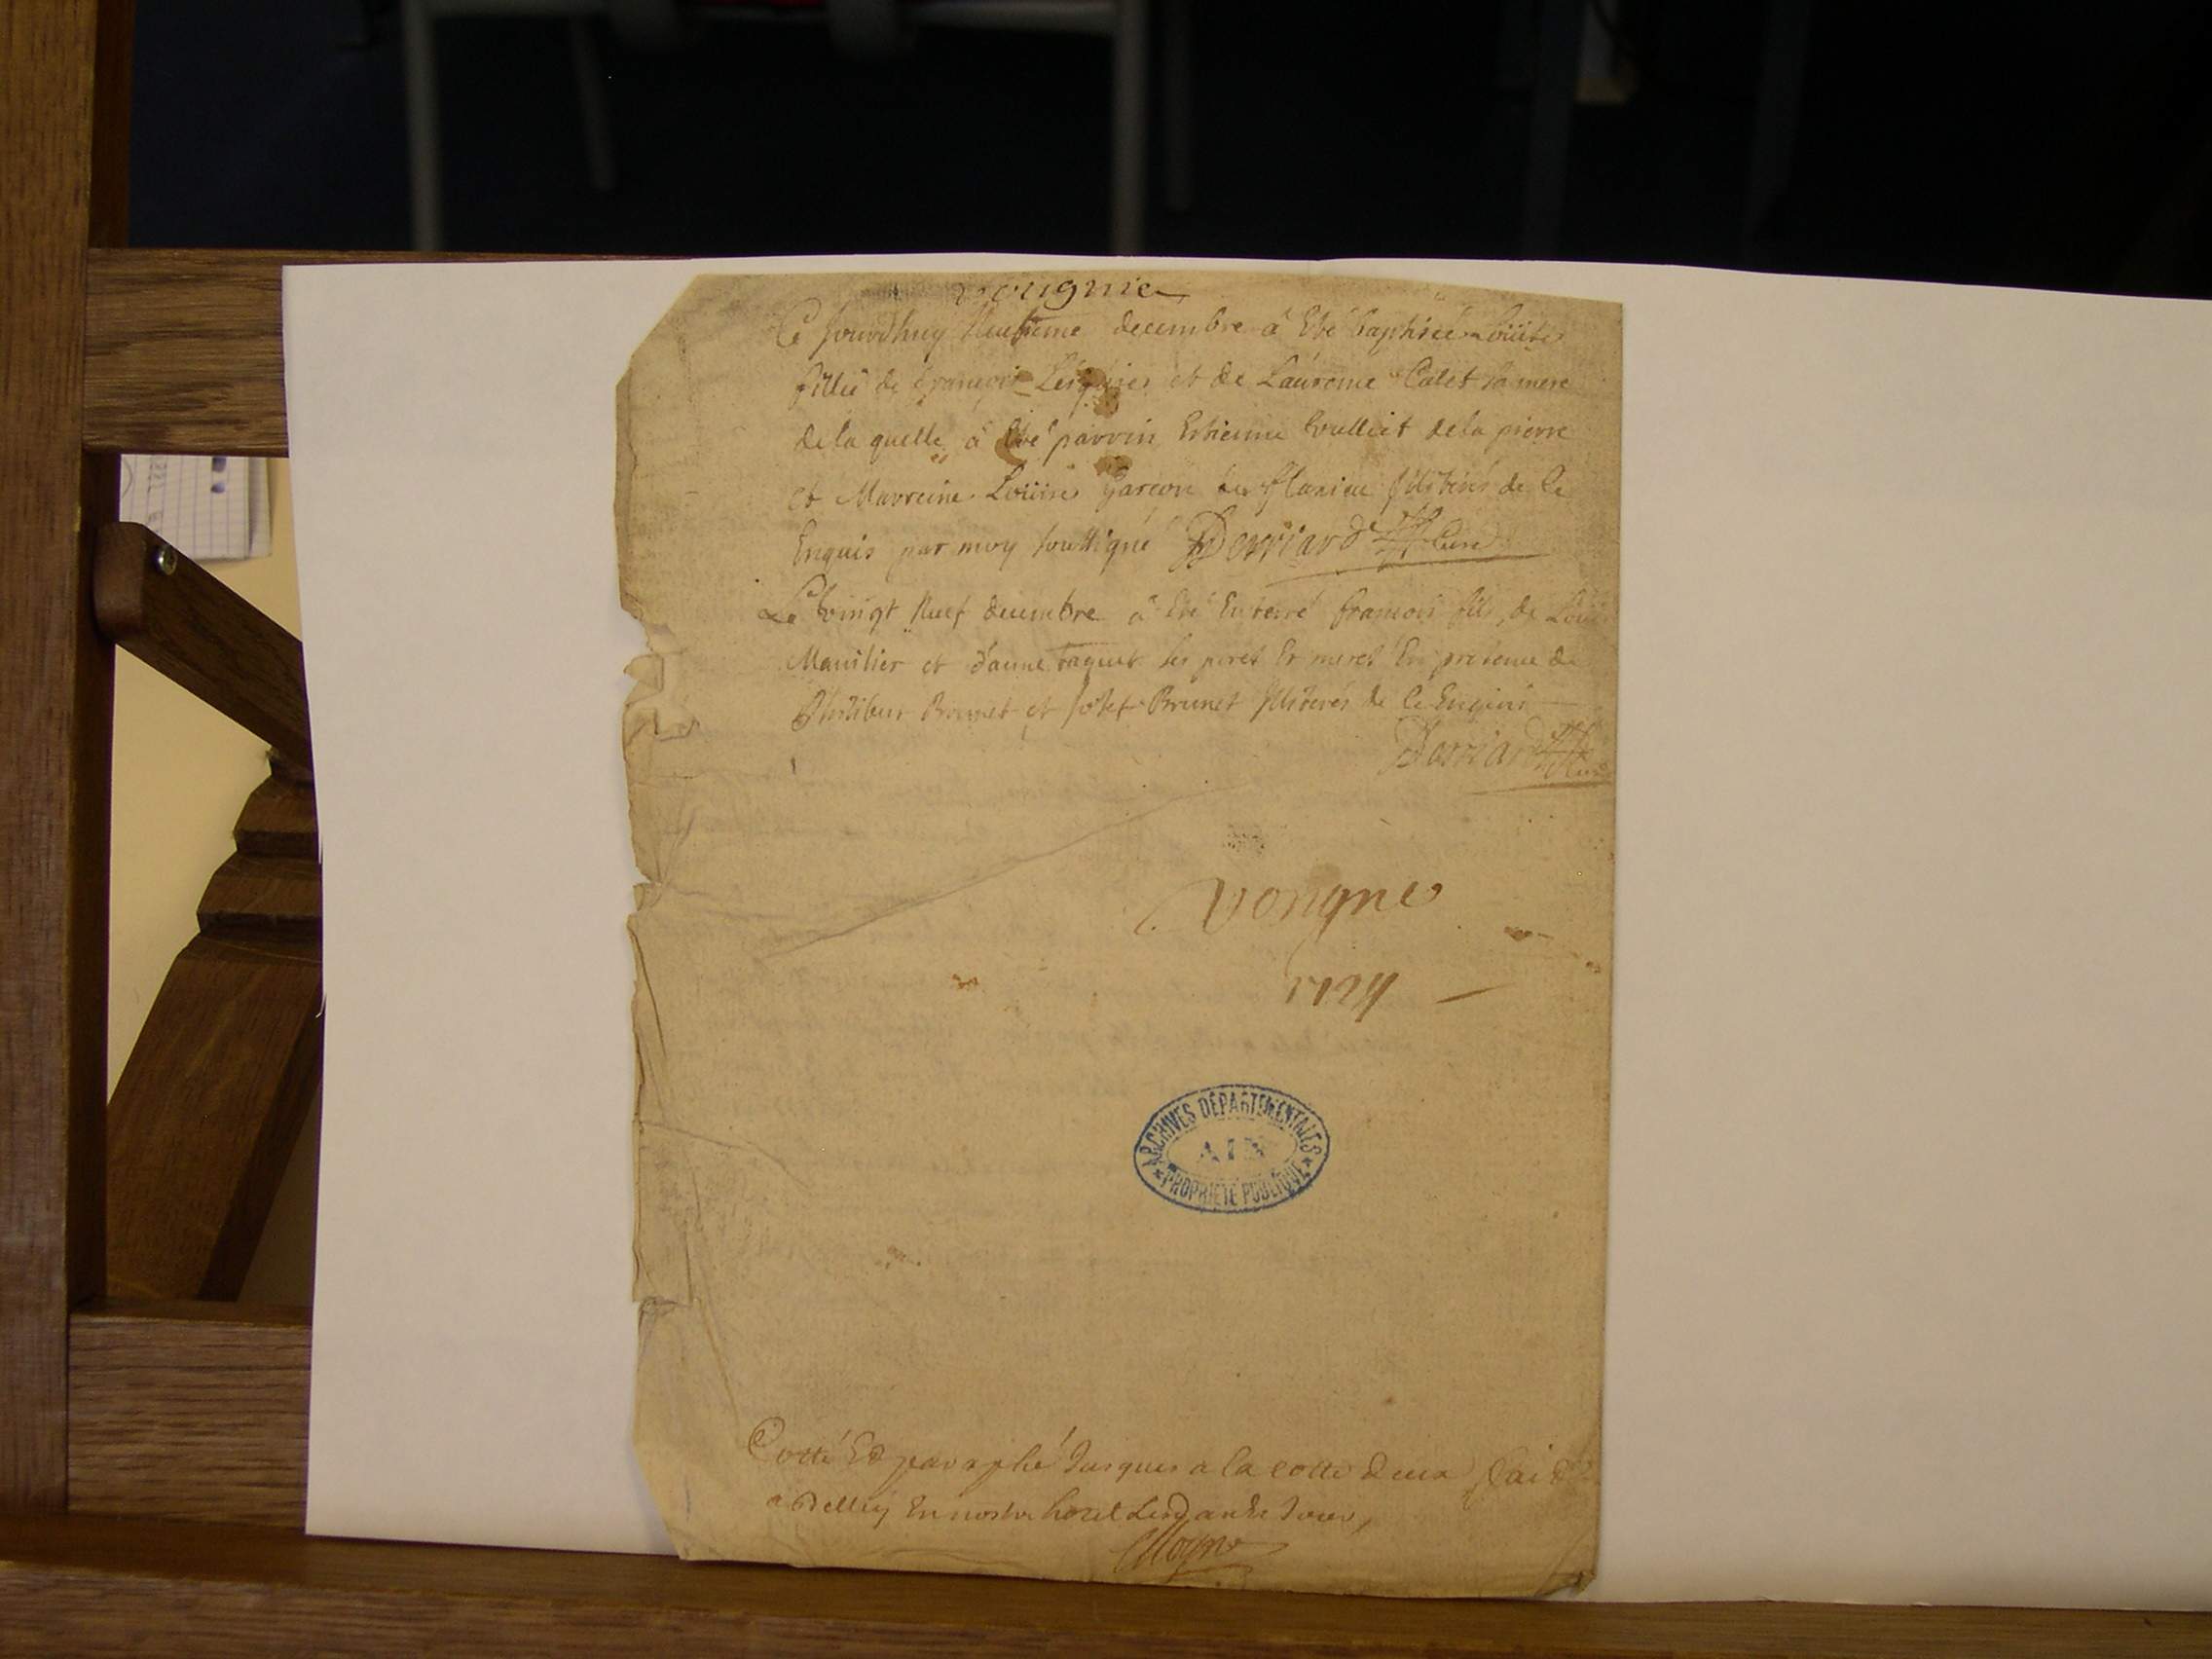 vougnie
Ce Jourdhuy Neufieme decembre â Eté baptisée Loüise
fillie de françois et de Laurence Calet sa mere
de la quelle â Eté parrin Estienne vulliet de la pierre
et Marreine Loüise Garçon illiterés de ce
Enquis par moy soussigné Derriard Curé
Le vingt Neuf decembre â Eté Enterré francois fils de Loui
Manilier et d'anne raquet ses peres Et meres En presence de
Philibert Brunet et Josef Brunet Illiterés de ce Enquis
Derriard Curé
vongnes
1729
ARCHIVES DÉPARTEMENTALES
AIN
PROPRIÉTÉ PUBLIQUE
Cotté Et paraphé Jusques a la cotte deux fait
a Belley En nostre hotel Lesd an et Jour,